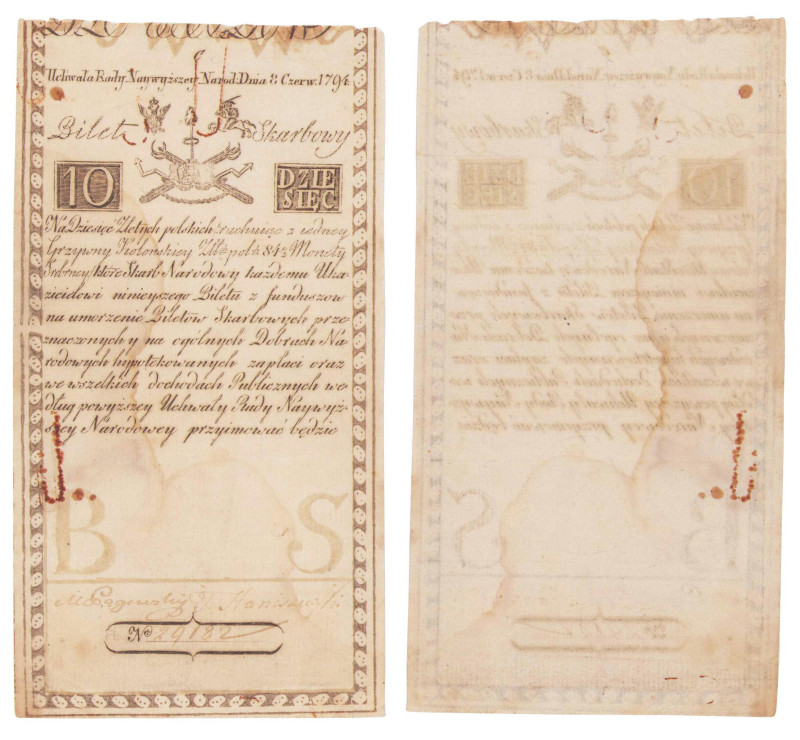 Uchwała Rady Naywyższey Narod: Dnia 8 Czerw. 1794.
Bilet Skarbowy
10 DZIE
SIĘC
Na Dziesięć Złotych polskich rachuiąc z iedney
Grzywny Kolońskiey Złł: pol: 84½ Monety
Srebrney, które Skarb Narodowy każdemu Oka
zicielowi ninieyszego Biletu z funduszow
na umorzenie Biletów Skarbowych prze
znaczonych y na ogólnych Dobrach Na
rodowych hypotekowanych zapłaci oraz
we wszelkich dochodach Publicznych we
dług powyższey Uchwały Rady Naywyż-
szey Narodowey przyimować będzie
B S
No 29182